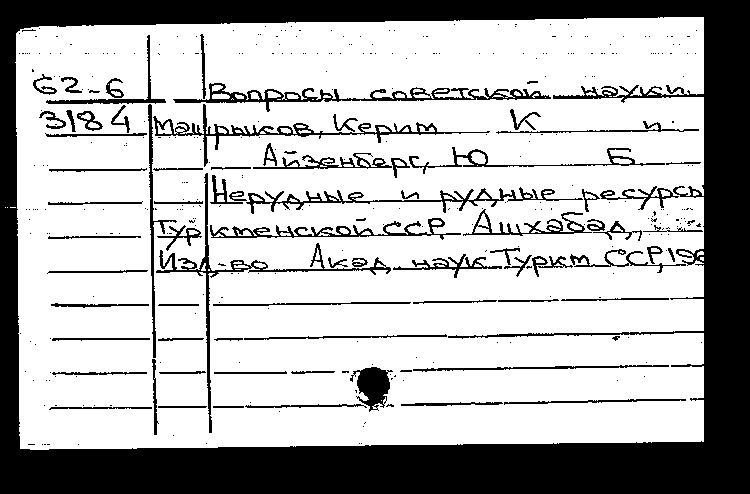 62-6 Вопросы советской науки.
3184 Машрыков, Керим К и
Айзенберг, Ю Б
Нерудные и рудные ресурсы
Туркменской ССР, Ашхабад,
Изд-во Акад. наук Туркм ССР, 196